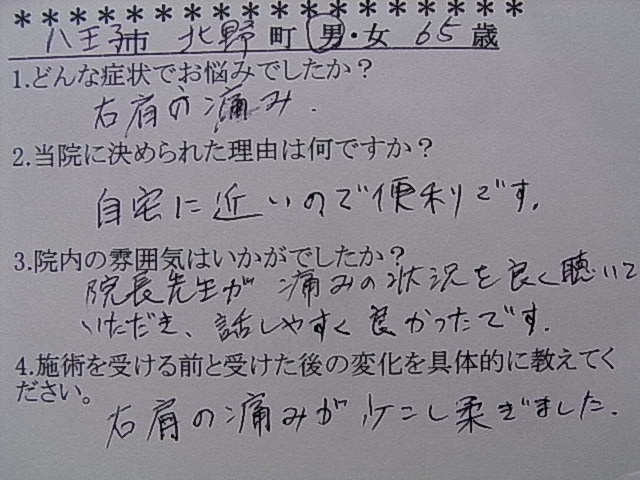 ＊＊＊＊＊＊＊＊＊＊＊＊＊＊＊＊＊＊＊＊＊＊
八王子市 北野町 男・女 65歳
1.どんな症状でお悩みでしたか？
右肩の痛み.
2.当院に決められた理由は何ですか？
自宅に近いので便利です。
3.院内の雰囲気はいかがでしたか？
院長先生が痛みの状況を良く聴いて
いただき、話しやすく良かったです.
4.施術を受ける前と受けた後の変化を具体的に教えてく
ださい。
右肩の痛みが少こし柔ぎました.